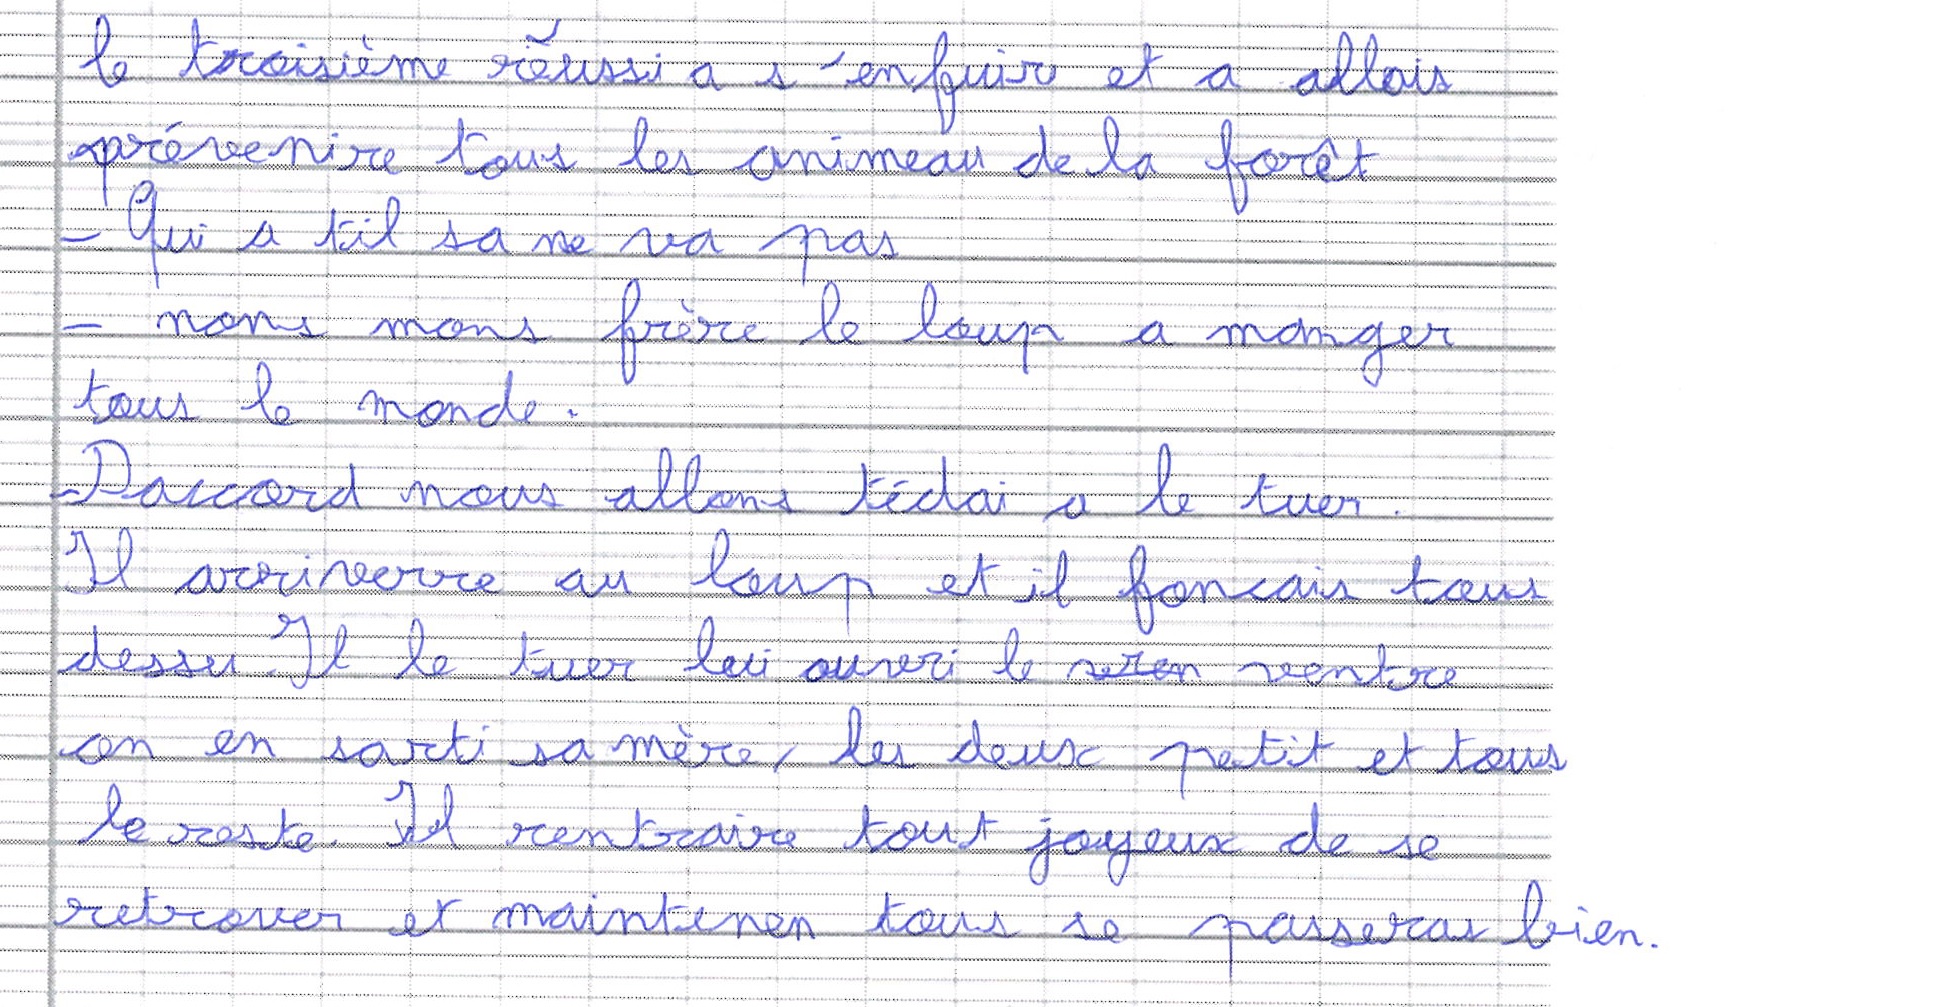 le troisième réussi a s'enfuir et a allais
prévenire tous les animeau de la forêt
- Qui a til sa ne va pas
- nons mons frère le loup a manger
tous le monde.
- Daccord nous allons tédai a le tuer.
Il arriverre au loup et il foncais tous
dessu. Il le tuer lui ouvri le ventre
on en sorti sa mère, les deux petit et tous
le reste. Il rentraire tout joyeux de se
retrover et maintenen tous se passeras bien.